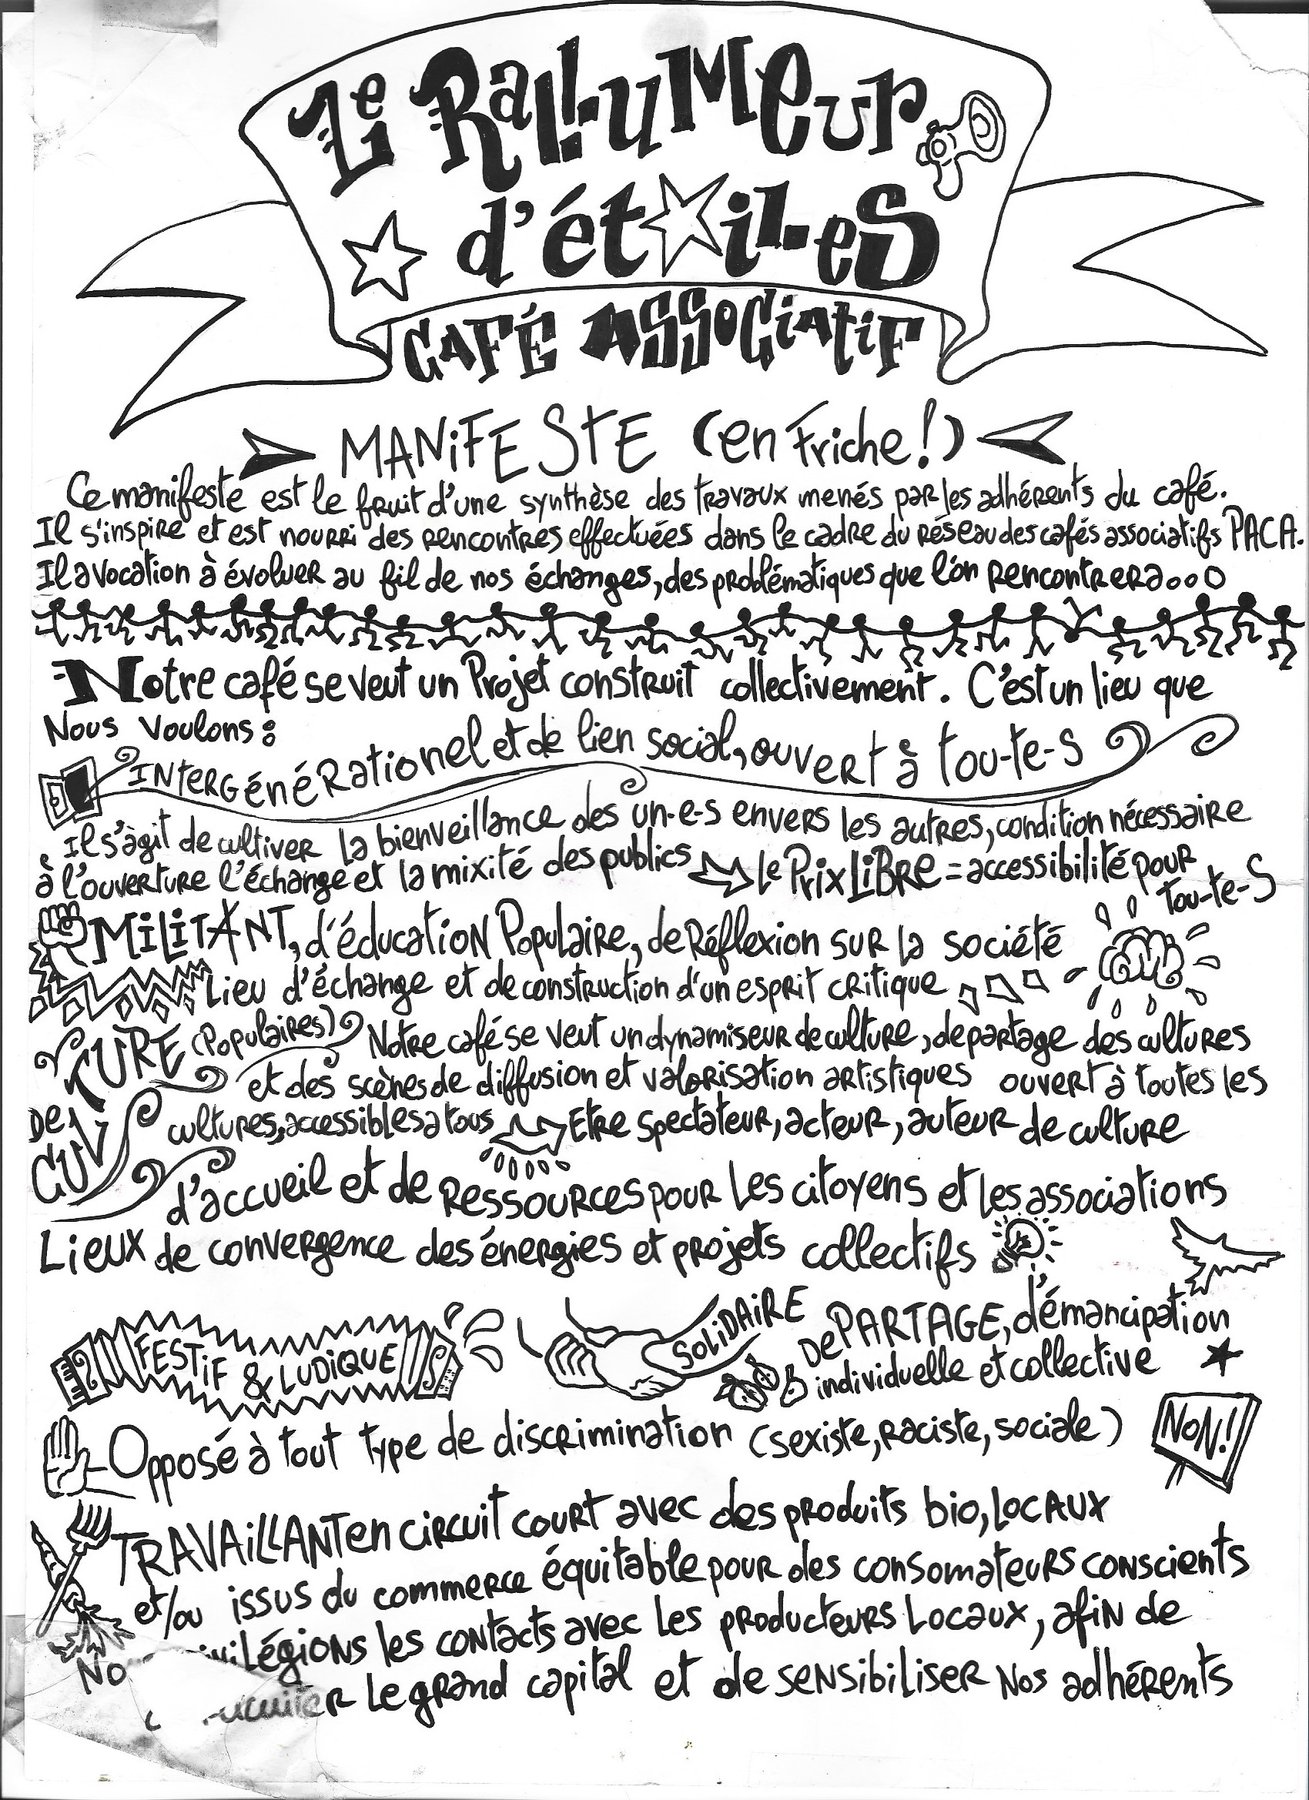 Le Rallumeur
d'étoiles
CAFÉ ASSOCIATIF
MANIFESTE (en Friche!)
Ce manifeste est le fruit d'une synthèse des travaux menés par les adhérents du café.
Il s'inspire et est nourri des rencontres effectuées dans le cadre du réseau des cafés associatifs PACA.
Il a vocation à évoluer au fil de nos échanges, des problématiques que l'on rencontrera...
Notre café se veut un Projet construit collectivement. C'est un lieu que
Nous Voulons:
INTERGÉNÉRationnel et de lien social, ouvert à tou-te-s
Il s'agit de cultiver la bienveillance des un-e-s envers les autres, condition nécessaire
à l'ouverture l'échange et la mixité des publics Le PRIX LIBRE = accessibilité pour
tou-te-s
MILITANT, d'éducation Populaire, de Réflexion sur la société
Lieu d'échange et de construction d'un esprit critique
DE CULTURE (Populaires) Notre café se veut un dynamiseur de culture, de partage des cultures
et des scènes de diffusion et valorisation artistiques ouvert à toutes les
cultures, accessibles a tous Etre spectateur, acteur, auteur de culture
d'accueil et de Ressources pour les citoyens et les associations
Lieux de convergence des énergies et projets collectifs
FESTIF & LUDIQUE
SOLIDAIRE
DE PARTAGE, d'émancipation
individuelle et collective
Opposé à tout type de discrimination (sexiste, raciste, sociale)
NON!
TRAVAILLANT en circuit court avec des produits bio, locaux
et/ou issus du commerce équitable pour des consomateurs conscients
les contacts avec les producteurs locaux, afin de
le grand capital et de sensibiliser nos adhérents